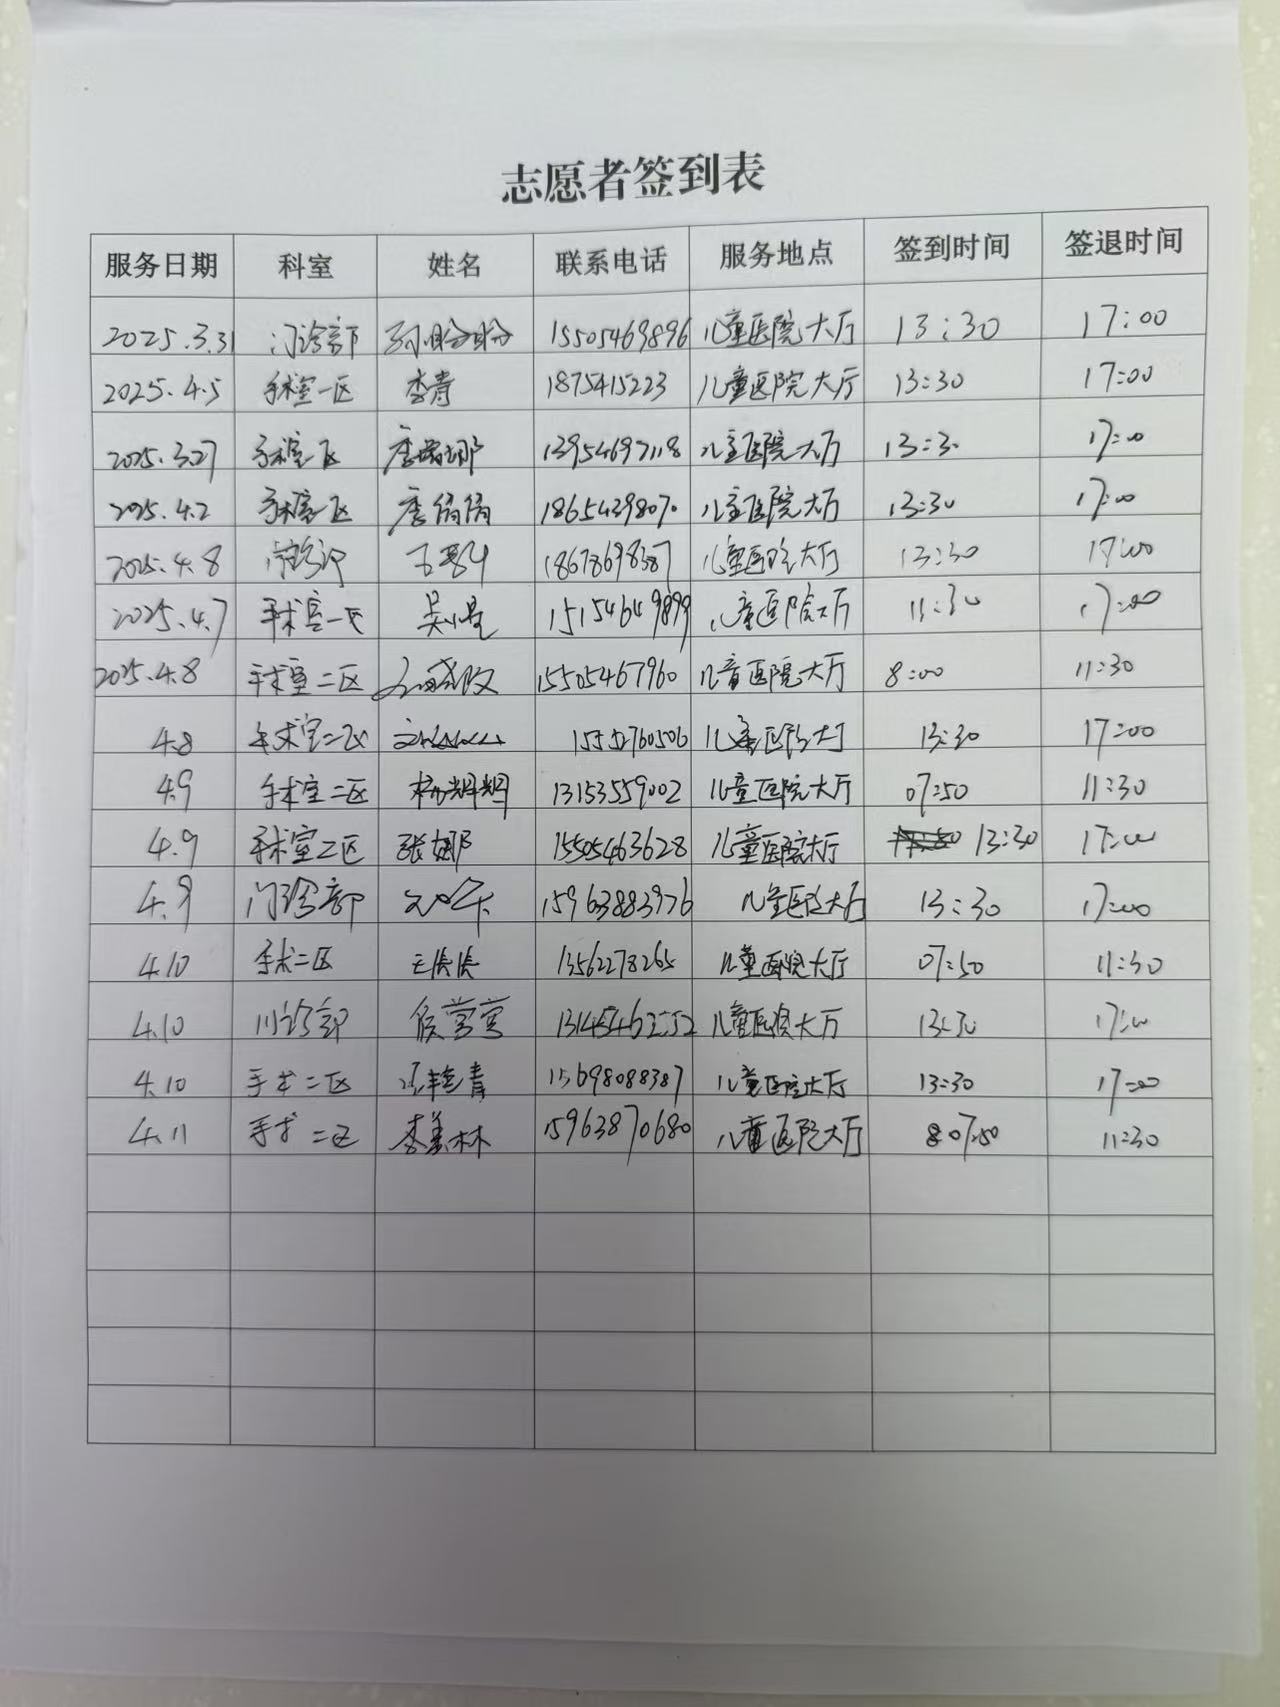 志愿者签到表
服务日期 科室 姓名 联系电话 服务地点 签到时间 签退时间
2025.3.31 门诊部 孙盼盼 15505469896 儿童医院大厅 13:30 17:00
2025.4.5 手术室一区 李青 1875415223 儿童医院大厅 13:30 17:00
2025.3.27 手术室一区 13954697118 儿童医院大厅 13:30 17:00
2025.4.2 手术室一区 18654398070 儿童医院大厅 13:30 17:00
2025.4.8 门诊部 18678698387 儿童医院大厅 13:30 17:00
2025.4.7 手术室一区 15154649899 儿童医院大厅 11:30 17:00
2025.4.8 手术室二区 15505467960 儿童医院大厅 8:00 11:30
4.8 手术室二区 15552760506 儿童医院大厅 13:30 17:00
4.9 手术室二区 13153559002 儿童医院大厅 07:50 11:30
4.9 手术室二区 张娜 15505463628 儿童医院大厅 13:30 17:00
4.9 门诊部 15963883976 儿童医院大厅 13:30 17:00
4.10 手术二区 13562278265 儿童医院大厅 07:50 11:30
4.10 门诊部 侯营营 儿童医院大厅 13:30 17:00
4.10 手术二区 15698088387 儿童医院大厅 13:30 17:00
4.11 手术二区 李美林 15963870680 儿童医院大厅 07:50 11:30